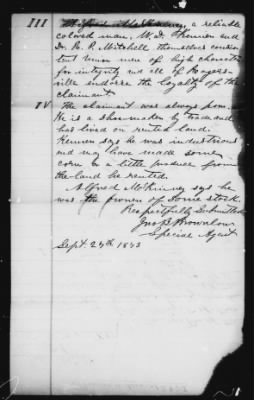 III Alfred McKinney, a reliable
colored man, W. D. Kenner and
Dr. R. P. Mitchell themselves conser-
but Union men of high character
for integrity we all of Rogers-
ville endorse the loyalty of the
claimant.
IV The claimant was always poor.
He is a shoemaker by trade and
has lived on rented land.
Kenner says he was industrious
and may have made some
corn & a little produce from
the land he rented.
Alfred McKinney says he
was the owner of some stock.
Respectfully Submitted
Jno B Brownlow
Special Agent
Sept. 25th 1873